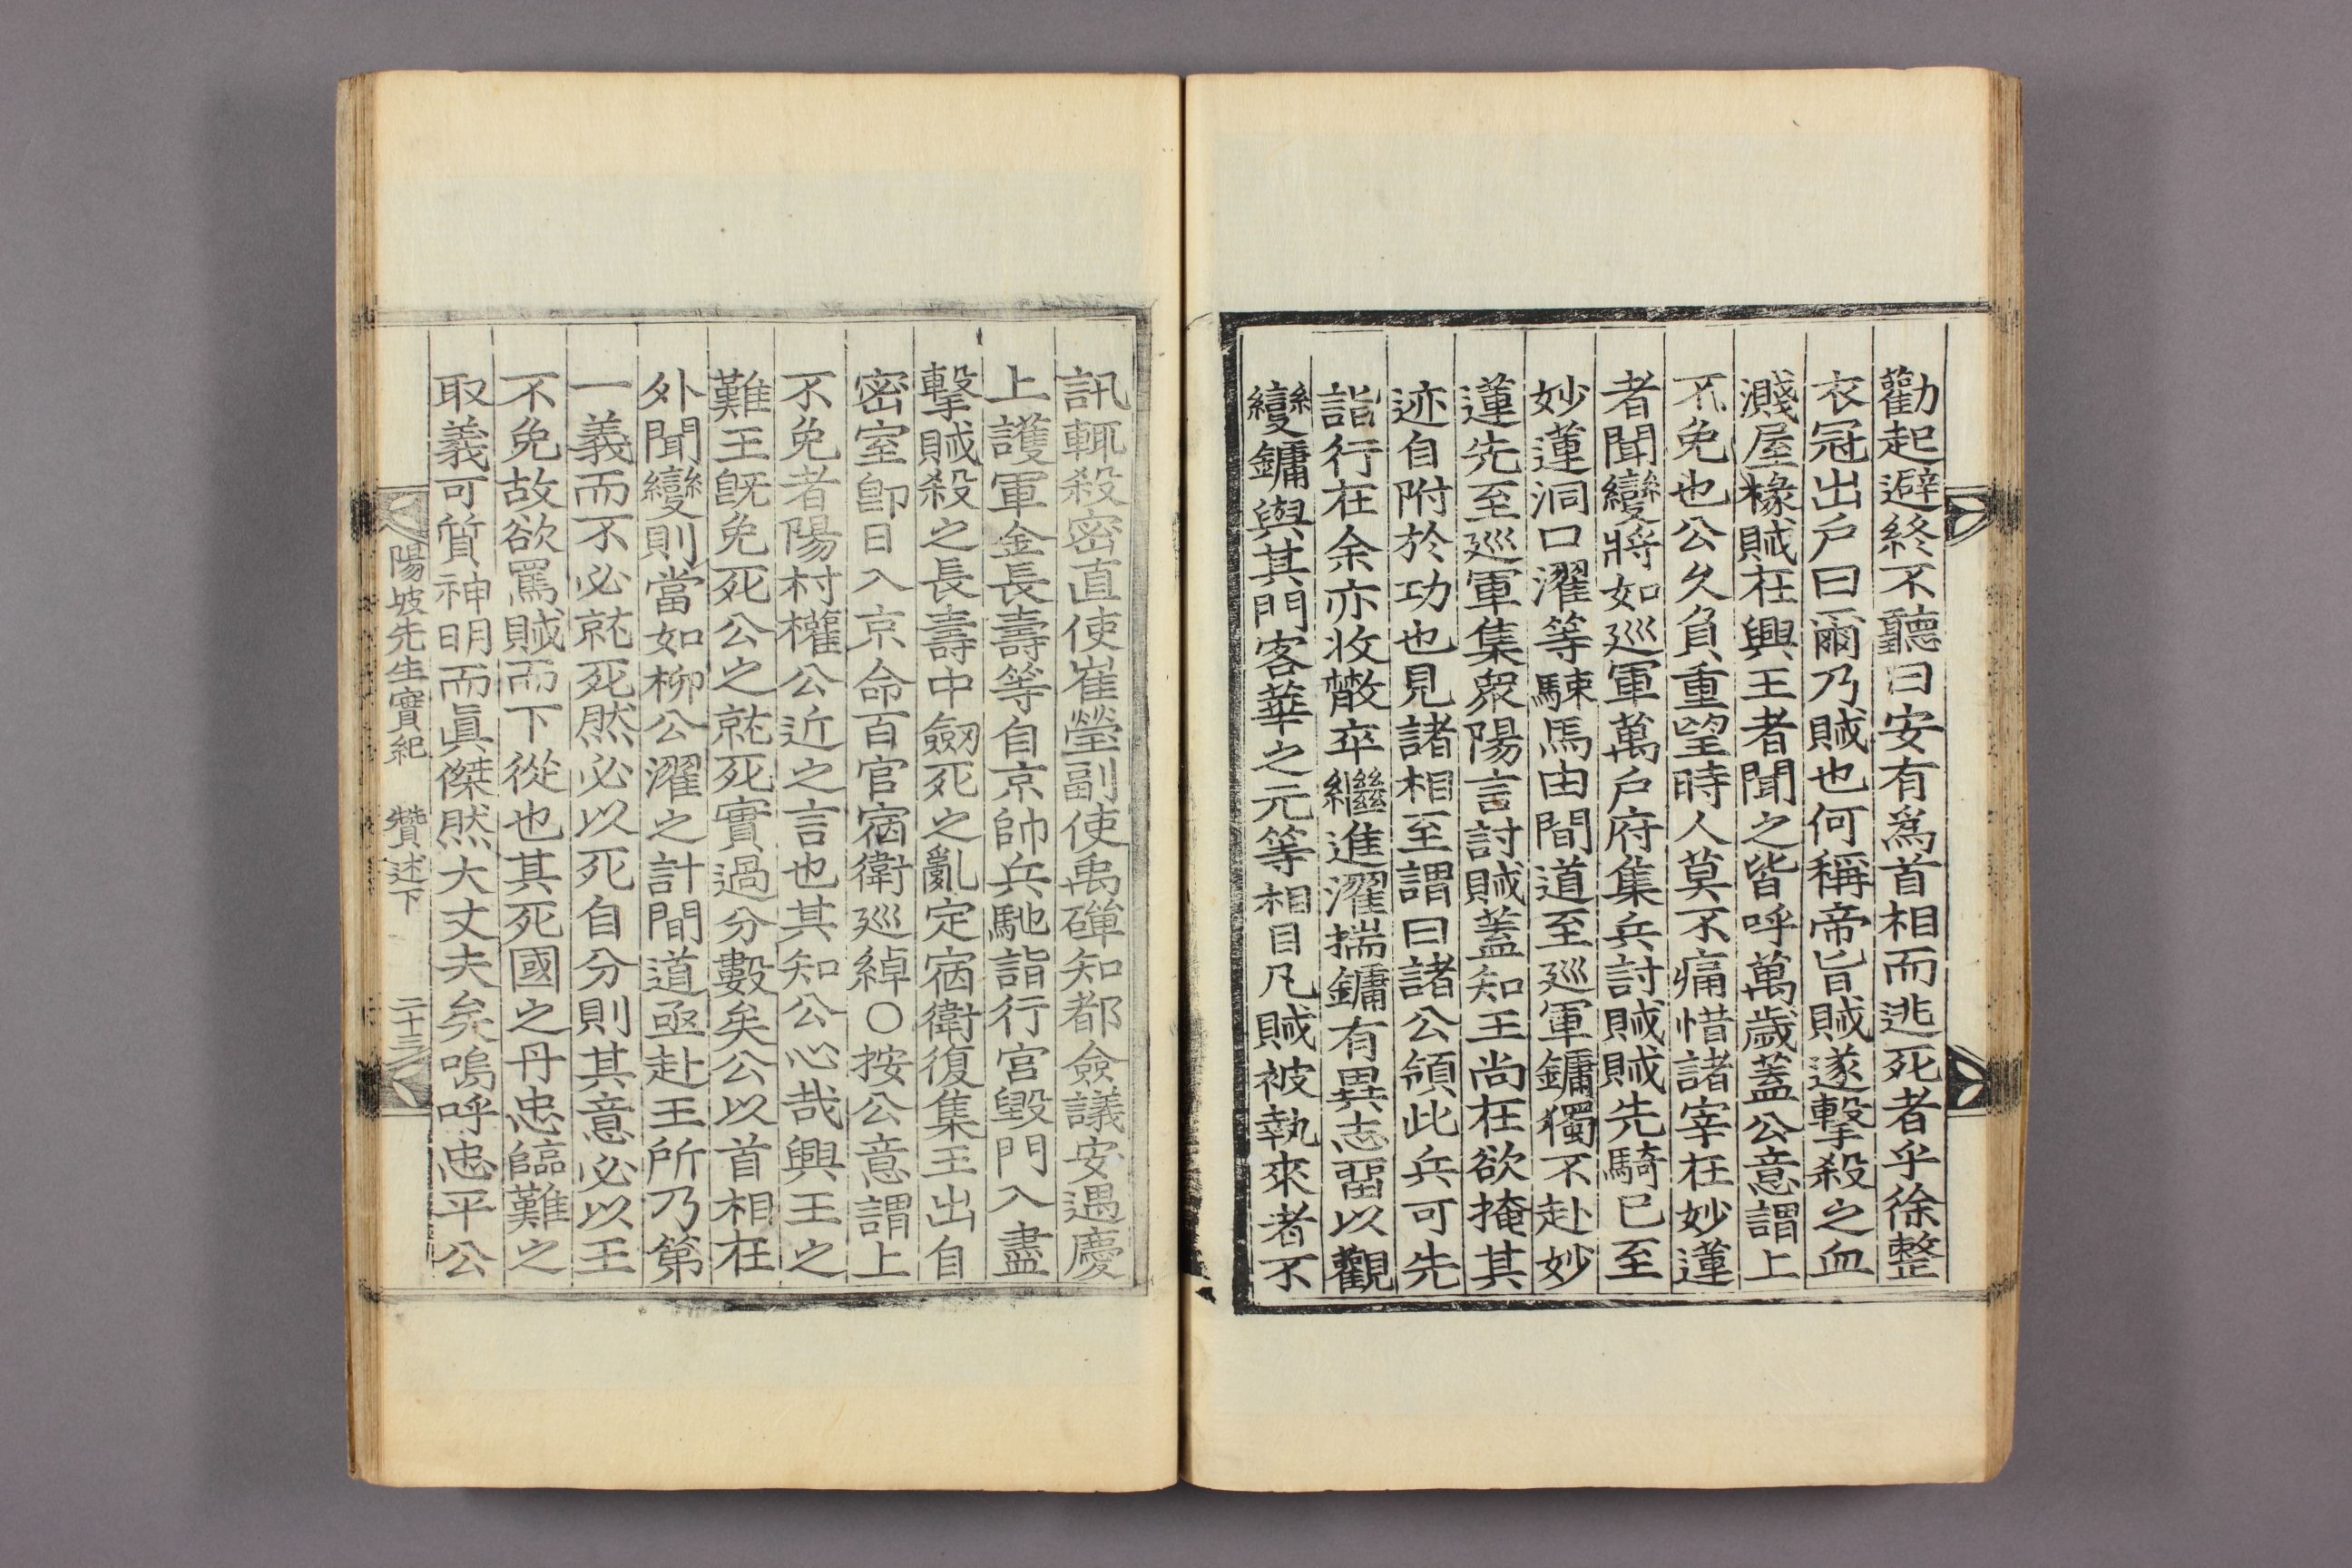 勸起避終不聽曰安有爲首相而逃死者乎徐整
衣冠出戶曰爾乃賊也何稱帝旨賊遂擊殺之血
濺屋椽賊在興王者聞之皆呼萬歲蓋公意謂上
不免也公久負重望時人莫不痛惜諸宰在妙蓮
者聞變將如巡軍萬戶府集兵討賊賊先騎已至
妙蓮洞口濯等駷馬由間道至巡軍鏞獨不赴妙
蓮先至巡軍集衆陽言討賊蓋知王尚在欲掩其
迹自附於功也見諸相至謂曰諸公領此兵可先
詣行在余亦收散卒繼進濯揣鏞有異志留以觀
變鏞與其門客華之元等相目凡賊被執來者不
訊輒殺密直使崔瑩副使禹磾知都僉議安遇慶
上護軍金長壽等自京帥兵馳詣行宮毀門入盡
擊賊殺之長壽中劒死之亂定宿衛復集王出自
密室卽日入京命百官宿衛巡綽○按公意謂上
不免者陽村權公近之言也其知公心哉興王之
難王旣免死公之就死實過分數矣公以首相在
外聞變則當如柳公濯之計間道亟赴王所乃第
一義而不必就死然必以死自分則其意必以王
不免故欲罵賊而下從也其死國之丹忠臨難之
取義可質神明而眞傑然大丈夫矣嗚呼忠平公
陽坡先生實紀 贊述下 二十三